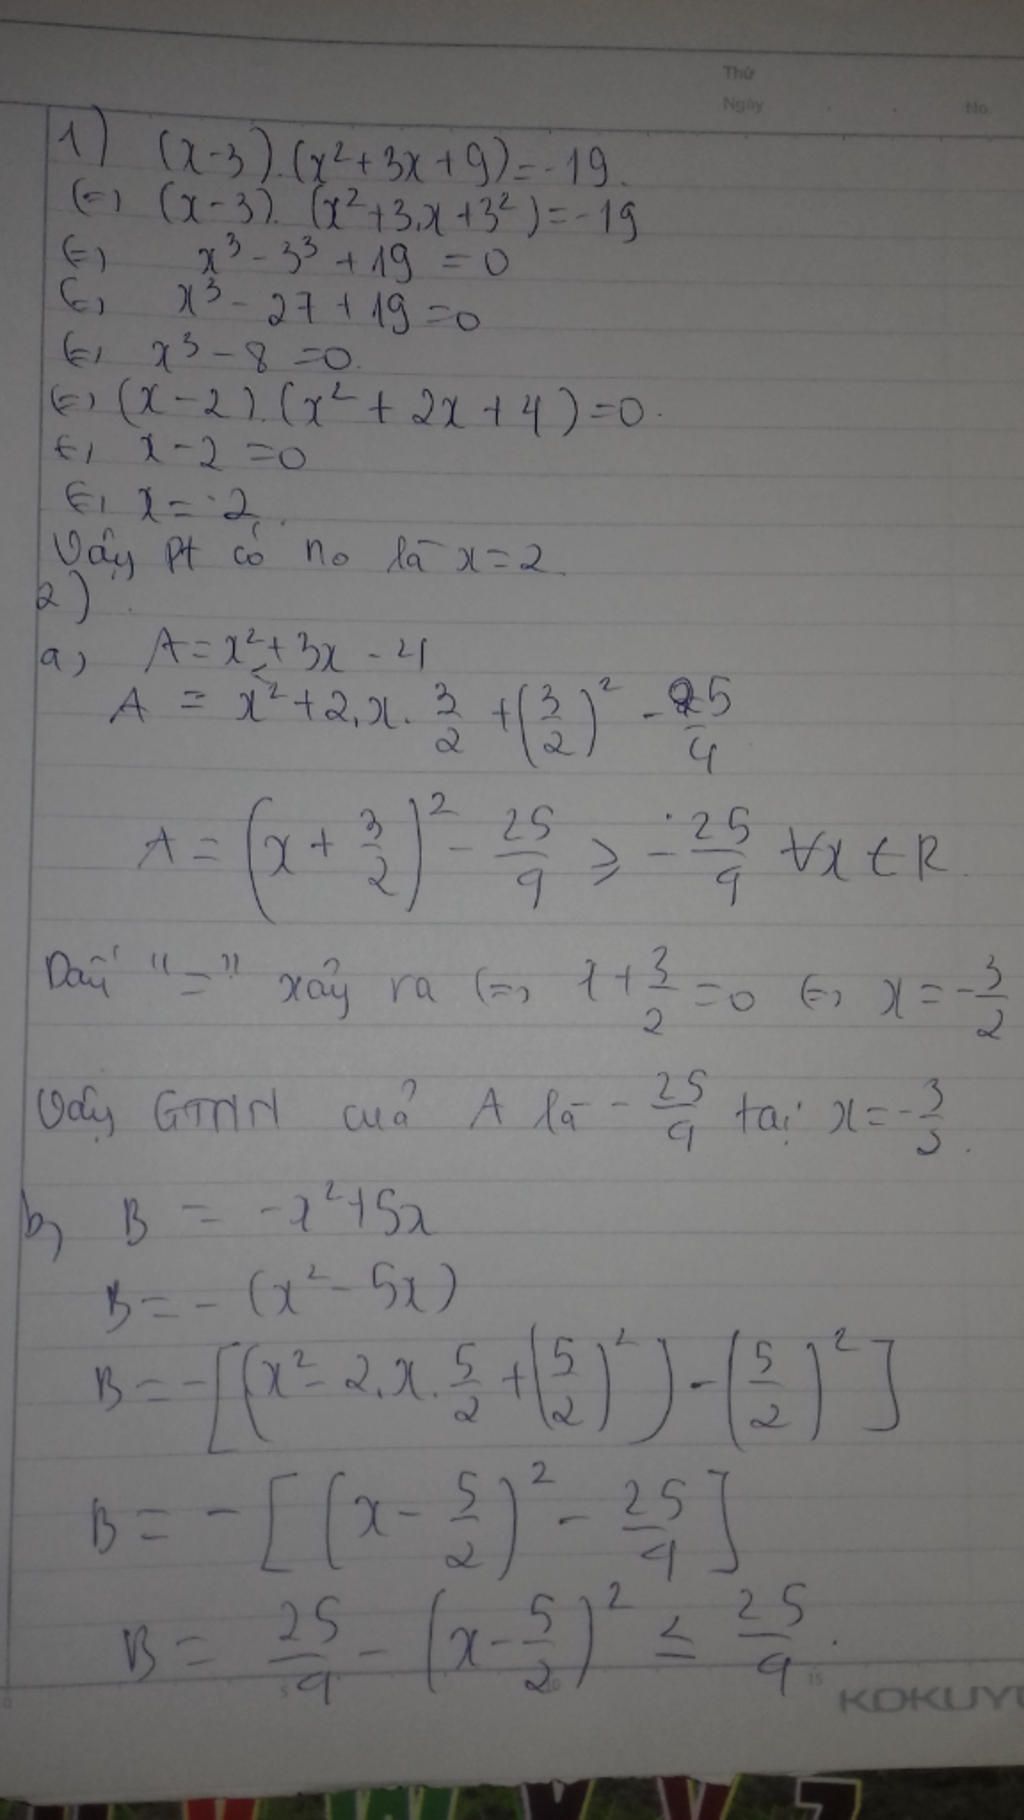 Thứ
Ngày . . No
1) (x-3).(x²+3x+9)=-19.
(=) (x-3).(x²+3.x+3²)=-19
(=) x³-3³+19=0
(=) x³-27+19=0
(=) x³-8=0.
(=) (x-2).(x²+2x+4)=0.
(=) x-2=0
(=) x=2.
Vậy Pt có no là x=2.
2)
a) A=x²+3x-4
A = x²+2.x.3/2+(3/2)²-25/4
A=(x+3/2)²-25/4 ≥ -25/4 ∀x∈R.
Dấu "=" xảy ra (=) x+3/2=0 (=) x=-3/2
Vậy GTNN của A là -25/4 tại x=-3/2.
b) B = -x²+5x
B=-(x²-5x)
B=-[(x²-2.x.5/2+(5/2)²)-(5/2)²]
B=-[(x-5/2)²-25/4]
B=25/4-(x-5/2)² ≤ 25/4.
5 10 15
KOKUYO